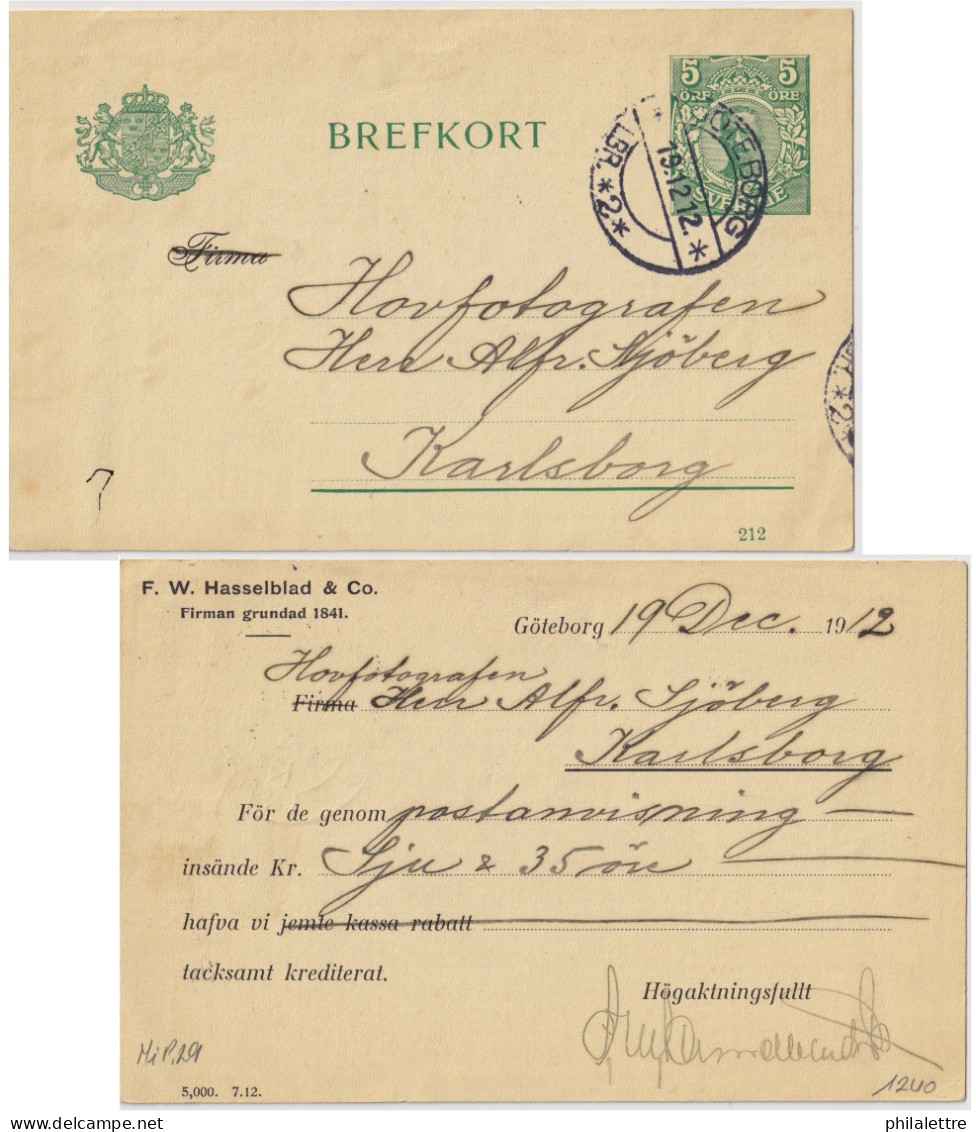 5 5
ÖRE ÖRE
BREFKORT
GÖTEBORG
19.12.12.
LBR. *2*
SVERIGE
Firma
Hovfotografen
Herr Alfr. Sjöberg
BR. *2*
Karlsborg
212
F. W. Hasselblad & Co.
Firman grundad 1841.
Göteborg 19 Dec. 1912
Hovfotografen
Firma Herr Alfr. Sjöberg
Karlsborg
För de genom postanvisning —
insände Kr. Sju & 35 öre —
hafva vi jemte kassa rabatt
tacksamt krediterat.
Högaktningsfullt
Mi P.29
5,000. 7.12.
1240
philalettre